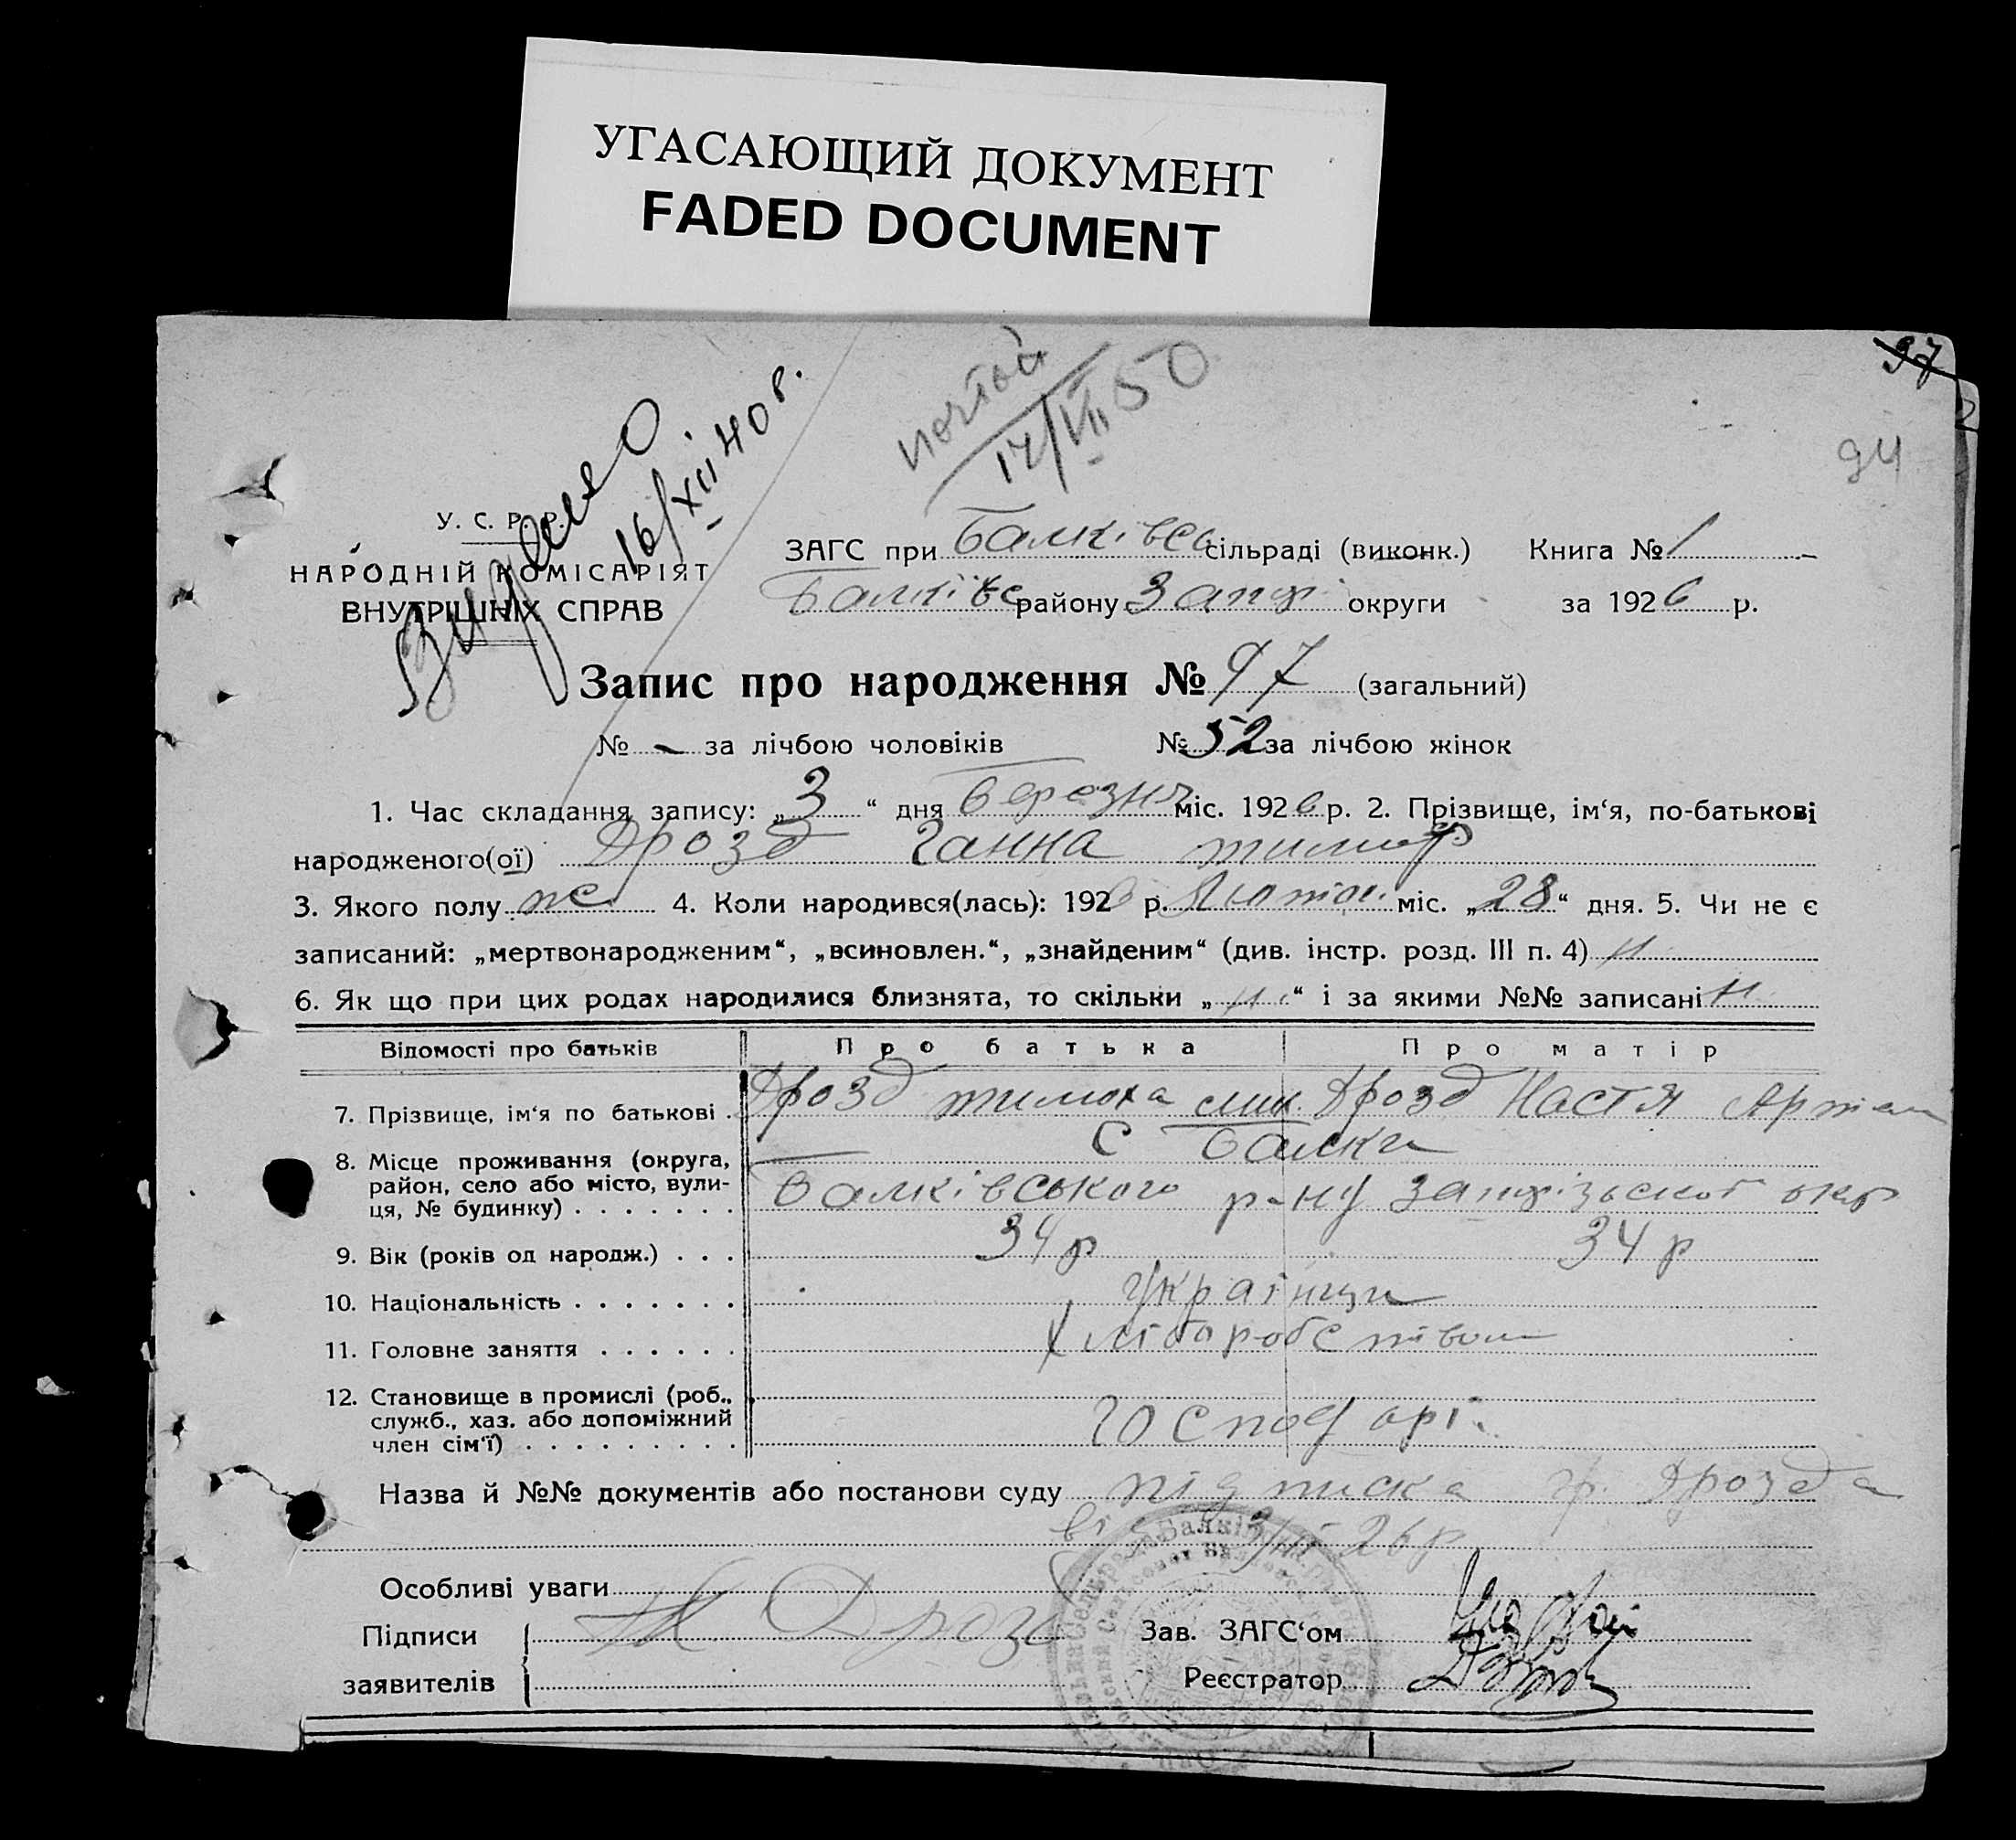 УГАСАЮЩИЙ ДОКУМЕНТ
FADED DOCUMENT
97
94
почтой
17/VII 50
Видано
16/XII 40 г.
У. С. Р. Р.
НАРОДНІЙ КОМІСАРІЯТ
ВНУТРІШНІХ СПРАВ
ЗАГС при Балківсь сільраді (виконк.) Книга № 1
Балківс району Запор округи за 1926 р.
Запис про народження № 97 (загальний)
№ - за лічбою чоловіків № 52 за лічбою жінок
1. Час складання запису: „3“ дня Березня міс. 1926 р. 2. Прізвище, ім‘я, по-батькові
народженого(ої) Дрозд Ганна тимоф
3. Якого полу ж 4. Коли народився(лась): 1926 р. Лютого міс. „28“ дня. 5. Чи не є
записаний: „мертвонародженим“, „всиновлен.“, „знайденим“ (див. інстр. розд. III п. 4) н
6. Як що при цих родах народилися близнята, то скільки „н“ і за якими №№ записані н
Відомості про батьків Про батька Про матір
7. Прізвище, ім‘я по батькові . Дрозд тимоха Дрозд Настя Артем
8. Місце проживання (округа, с Балки
район, село або місто, вули-
ця, № будинку) . . . . . . . Балківського р-ну Запорізської окр
9. Вік (років од народж.) . . . 34 р 34 р
10. Національність . . . . . . . Українци
11. Головне заняття . . . . . . Хліборобством
12. Становище в промислі (роб.,
служб., хаз. або допоміжний Господарі
член сім‘ї) . . . . . . . . .
Назва й №№ документів або постанови суду підписка гр. Дрозда
ві 3/III 26 р
Особливі уваги
Підписи Дрозд Зав. ЗАГС‘ом
заявителів Реєстратор